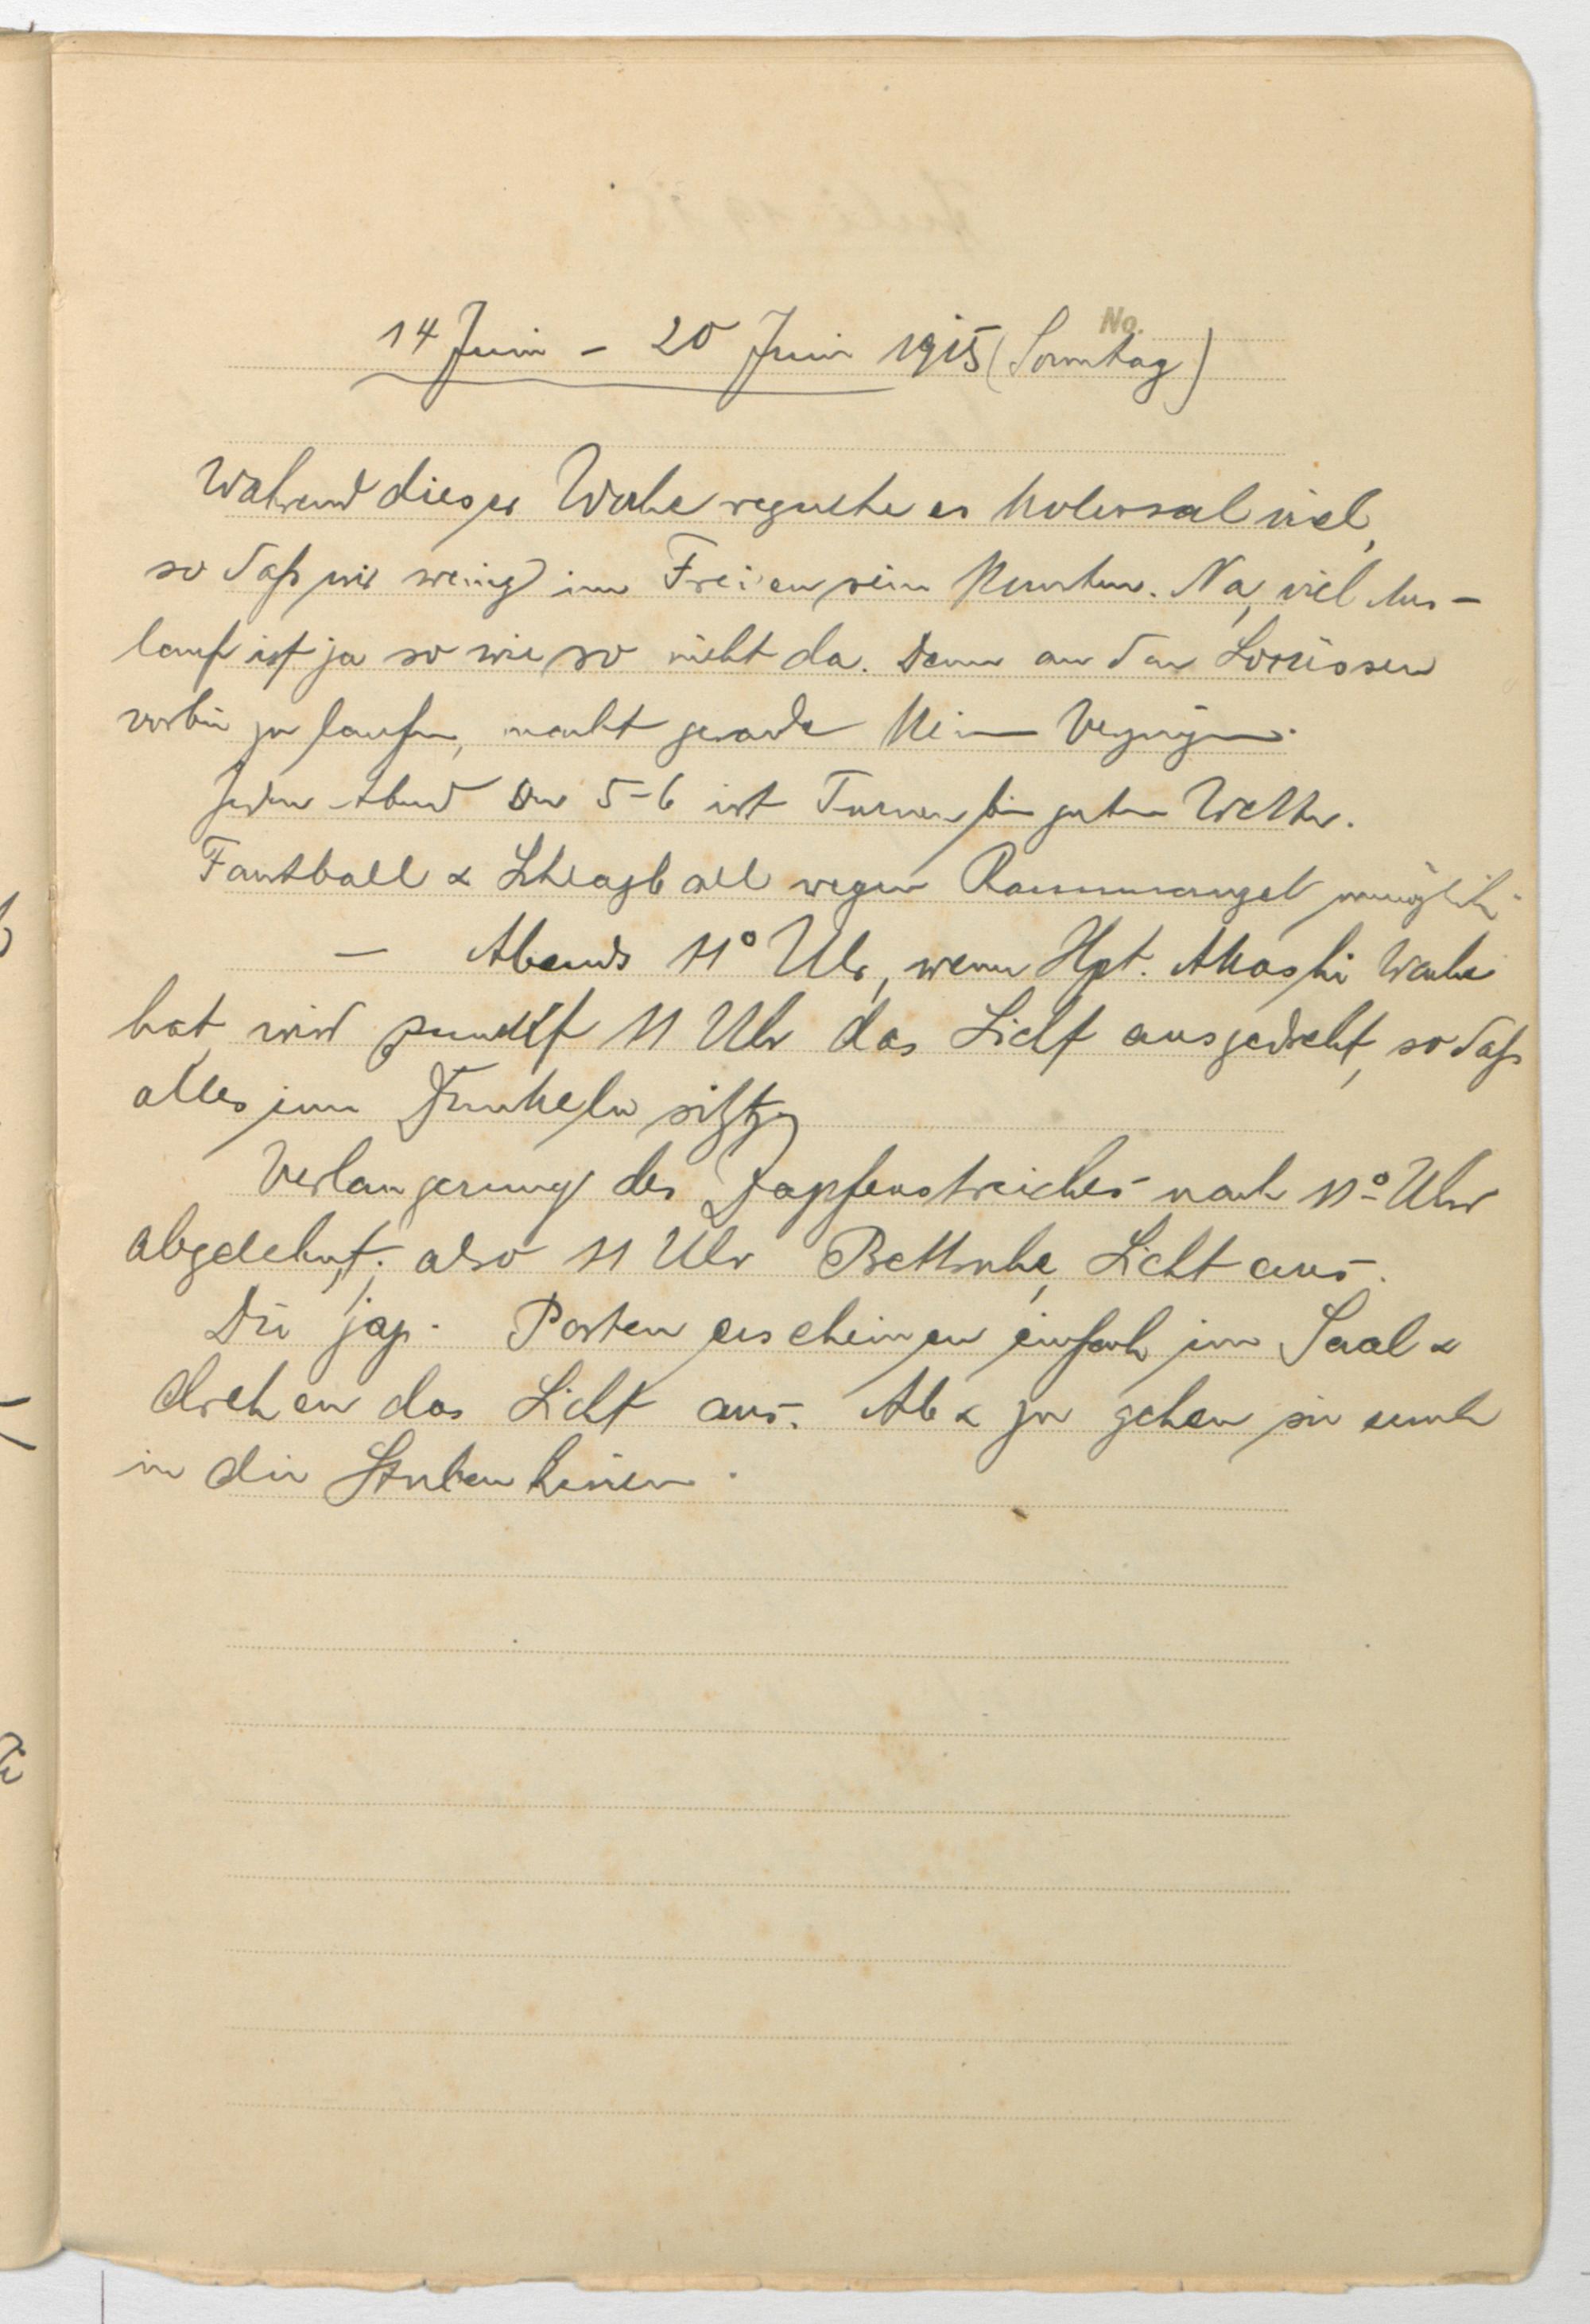 No.
14 Juni - 20 Juni 1915 (Sonntag)
Während dieser Woche regnete es kolossal viel,
so daß wir wenig im Freien sein konnten. Na, viel Aus-
lauf ist ja so wie so nicht da. Denn an den
vorbei zu laufen, macht gerade kein Vergnügen.
Jeden Abend von 5-6 ist Turnen bei gutem Wetter.
Faustball & Schlagball wegen Raummangel unmöglich.
- Abends 11° Uhr, wenn Hpt. Akashi Wache
hat wird punkt 11 Uhr das Licht ausgedreht, so daß
alles im Dunkeln sitzt
Verlangerung des Zapfenstreiches nach 11° Uhr
abgelehnt; also 11 Uhr Bettruhe, Licht aus.
Die jap. Posten erscheinen einfach im Saal &
drehen das Licht aus. Ab & zu gehen sie auch
in die Stuben hinein.